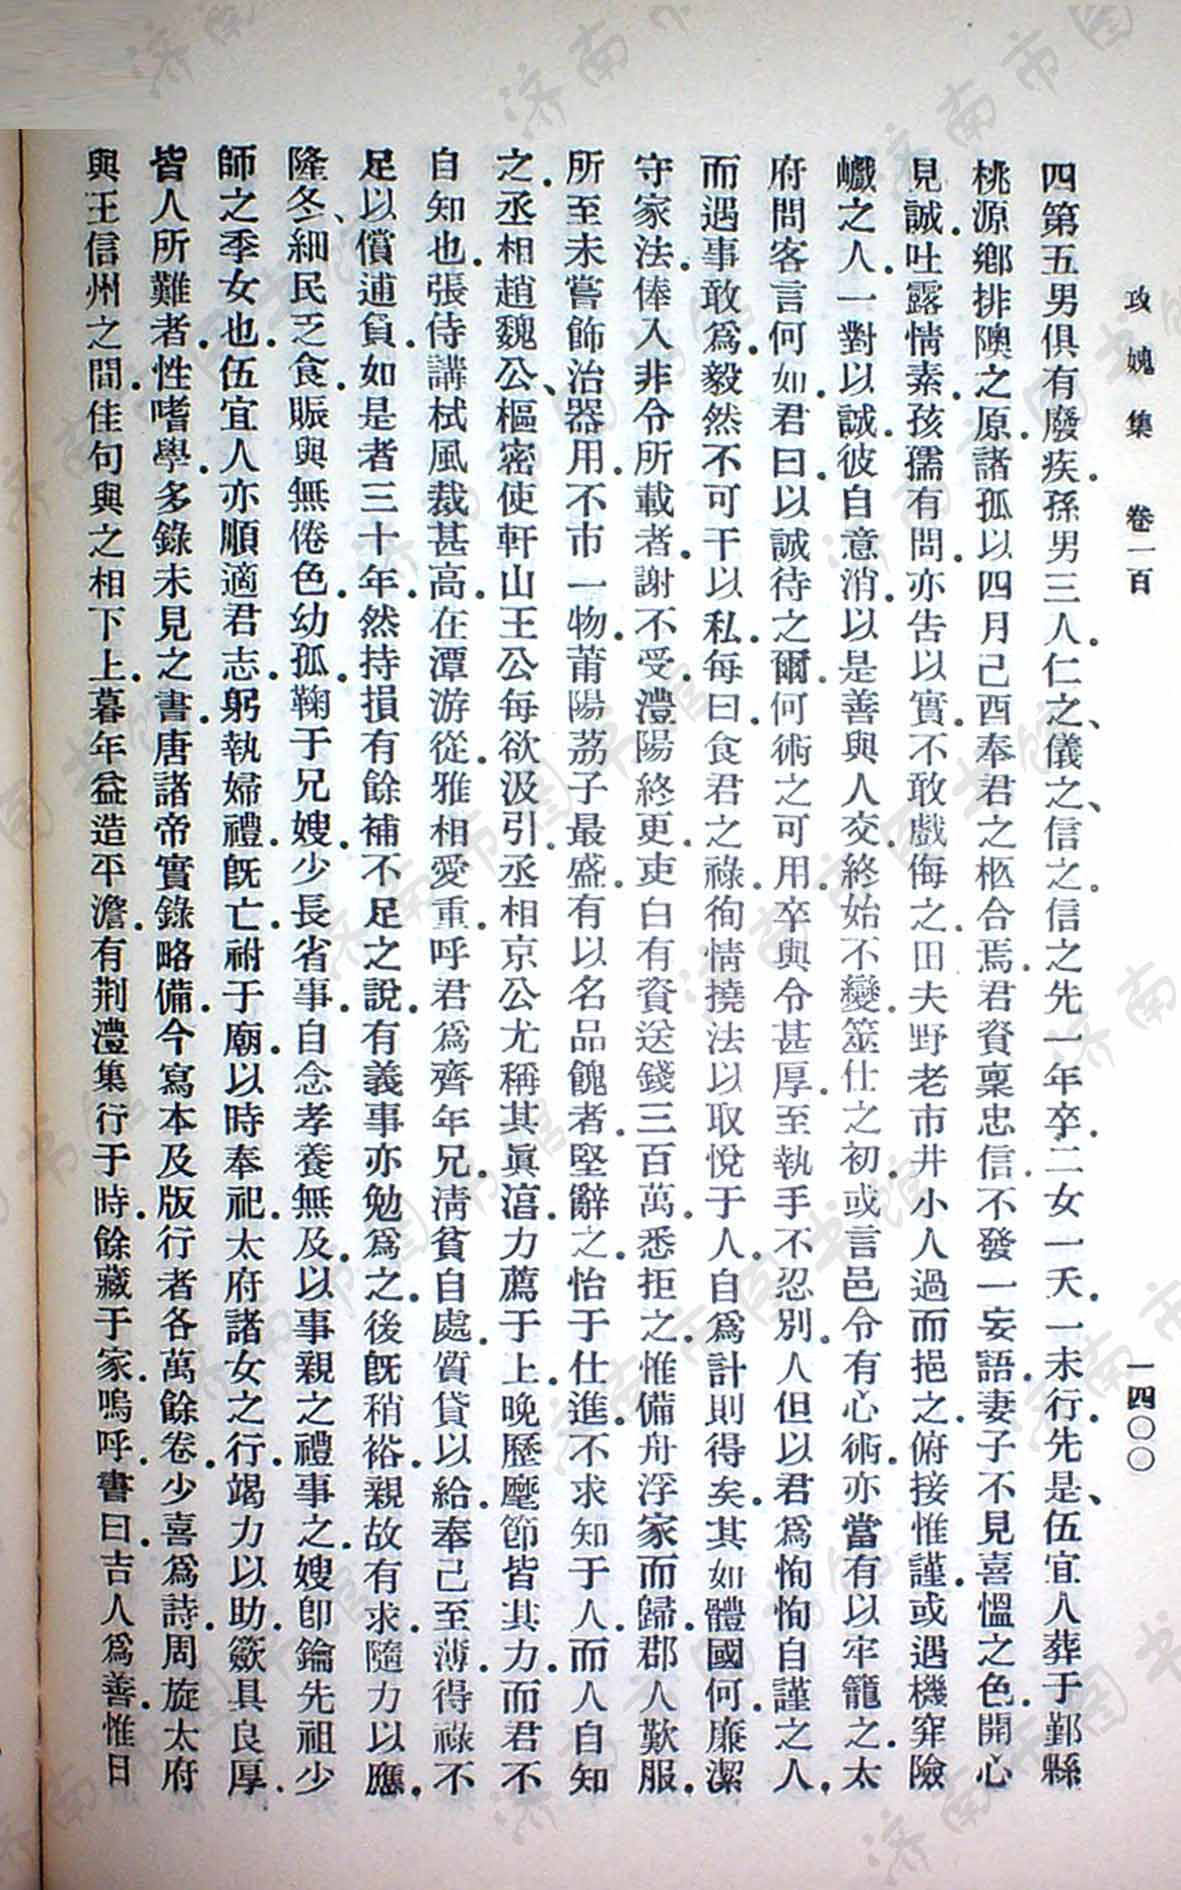 攻媿集　卷一百　一四〇〇
四第五男俱有廢疾．孫男三人．仁之、儀之、信之。信之先一年卒．二女一夭．一未行．先是、伍宜人葬于鄞縣
桃源鄉排隩之原．諸孤以四月己酉奉君之柩合焉．君資稟忠信．不發一妄語．妻子不見喜慍之色．開心
見誠．吐露情素．孩孺有問．亦告以實．不敢戲侮之．田夫野老市井小人過而挹之．俯接惟謹．或遇機穽險
巇之人．一對以誠．彼自意消．以是善與人交．終始不變．筮仕之初．或言邑令有心術．亦當有以牢籠之．太
府問客言何如．君曰．以誠待之爾．何術之可用．卒與令甚厚．至執手不忍別．人但以君爲恂恂自謹之人．
而遇事敢爲．毅然不可干以私．每曰．食君之祿．徇情撓法以取悅于人．自爲計則得矣．其如體國何．廉潔
守家法．俸入非令所載者．謝不受．澧陽終更．吏白有資送錢三百萬．悉拒之．惟備舟浮家而歸．郡人歎服．
所至未嘗飾治器用．不市一物．莆陽荔子最盛．有以名品餽者．堅辭之．恬于仕進．不求知于人．而人自知
之．丞相趙魏公、樞密使軒山王公每欲汲引．丞相京公尤稱其眞．力薦于上．晚歷麾節皆其力．而君不
自知也．張侍講栻風裁甚高．在潭游從．雅相愛重．呼君爲齊年兄．淸貧自處．質貸以給．奉己至薄．得祿不
足以償逋負．如是者三十年．然持損有餘補不足之說．有義事亦勉爲之．後旣稍裕．親故有求．隨力以應．
隆冬、細民乏食．賑與無倦色．幼孤．鞠于兄嫂．少長省事．自念孝養無及．以事親之禮事之．嫂卽鑰先祖少
師之季女也．伍宜人亦順適君志．躬執婦禮．旣亡．祔于廟．以時奉祀．太府諸女之行．竭力以助．籢具良厚．
皆人所難者．性嗜學．多錄未見之書．唐諸帝實錄略備．今寫本及版行者各萬餘卷．少喜爲詩．周旋太府
與王信州之間．佳句與之相下上．暮年益造平澹．有荆澧集行于時．餘藏于家．嗚呼．書曰．吉人爲善．惟日